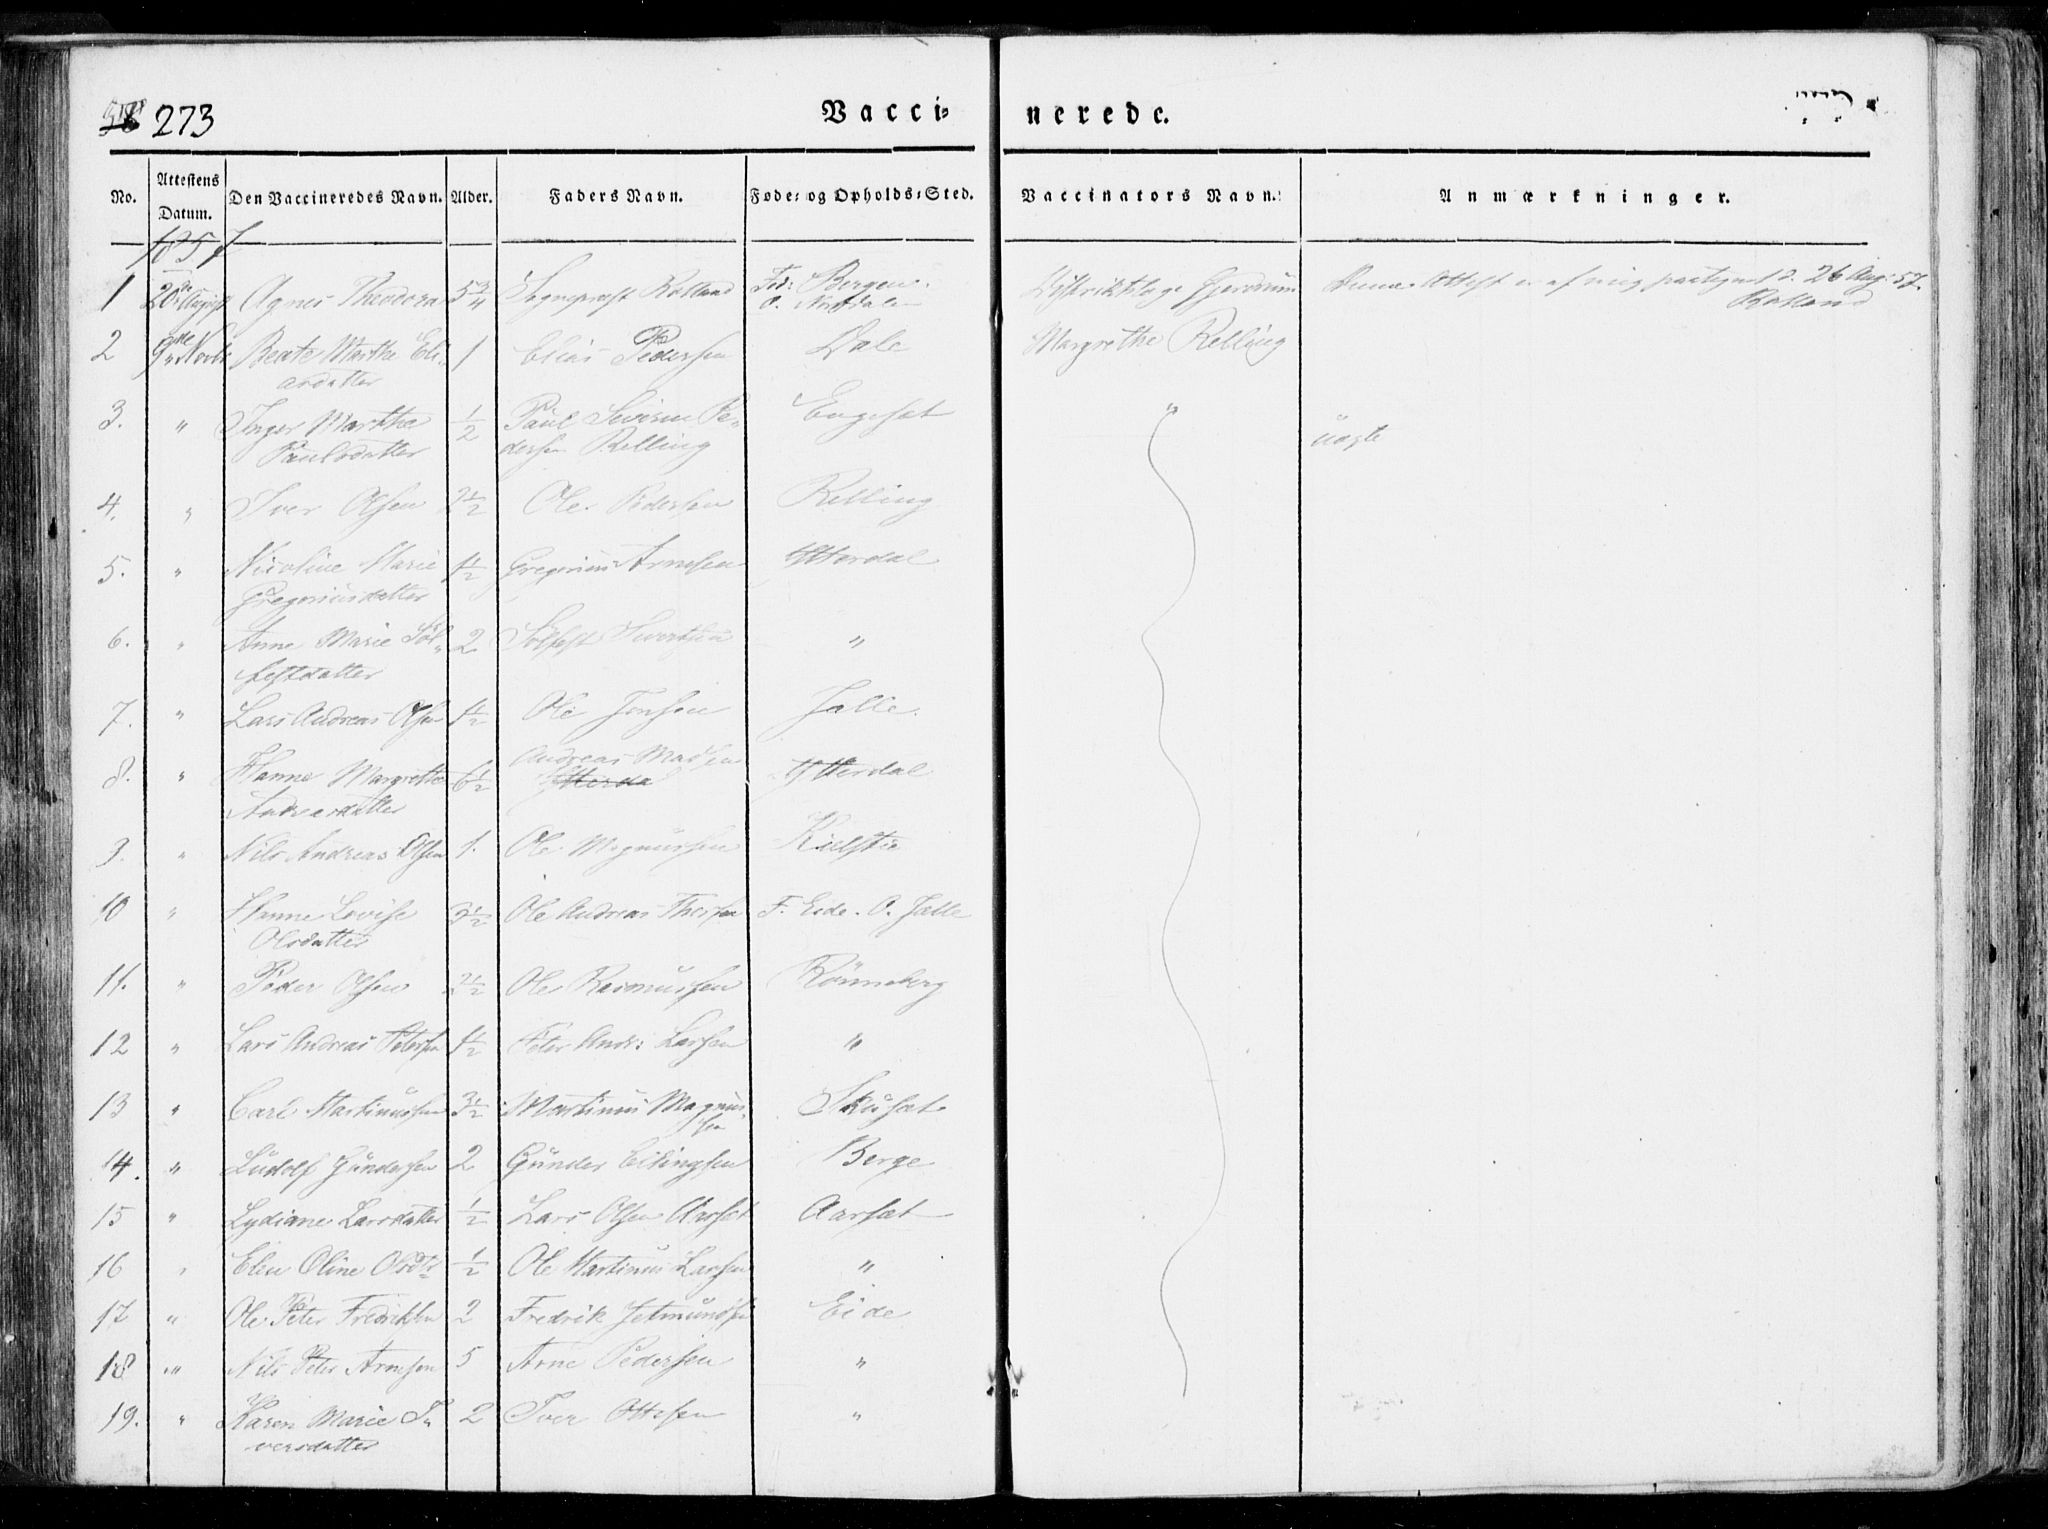 273 Vaccinerede.
No. Attestens Datum. Den Vaccineredes Navn. Alder. Faders Navn. Føde- og Opholds-Sted. Vaccinators Navn. Anmærkninger.
1857
1 20de August Agnes Theodora 5 3/4 Sognepræst Fød: Bergen. Distriktslæge Denne Attest er af mig paategnet d. 26 Aug: 57.
O. Norddalen
2 9de Novbr Beate Marthe Eli- 1 Elias Pedersen Dale Margrethe Relling
asdatter
3. " Inger Marthe 1/2 Paul Severin Pe- Engeset "
Paulsdatter dersen Relling uægte
4. " Iver Olsen 2 1/2 Ole Pedersen Relling
5. " Nicoline Marie 1 1/2 Gregorius Arnesen Ytterdal
Gregoriusdatter
6. " Anne Marie Söl- 2 Sölfest Sivertsen "
festdatter
7. " Lars Andreas Olsen 1 1/2 Ole Jensen Jalle.
8. " Hanne Margrethe 6 1/2 Andreas Madsen Ytterdal
Andreasdatter
9. " Nils Andreas Olsen 1. Ole Magnussen
10 " Hanne Lovise 3 1/2 Ole Andreas F. Eide. O. Jalle
Olsdatter
11. " Peder Olsen 2 1/2 Ole Rasmussen Rönneberg
12 " Lars Andreas Petersen 1 1/2 Peter Andr: Larsen "
13 " Carl Martinussen 3 1/2 Martinus Magnus- Skuset
sen
14. " Ludolf Gundersen 2 Gunder Ellingsen Berge
15 " Lydiane Larsdatter 1/2 Lars Olsen Aarset Aarset
16 " Elen Oline Olsdtr 1/2 Ole Martinus Larsen "
17 " Ole Peter Fredriksen 2 Fredrik Jetmundsen Eide
18 " Nils Peter Arnesen 5 Arne Pedersen "
19. " Karen Marie I- 2 Iver Ottesen "
versdatter